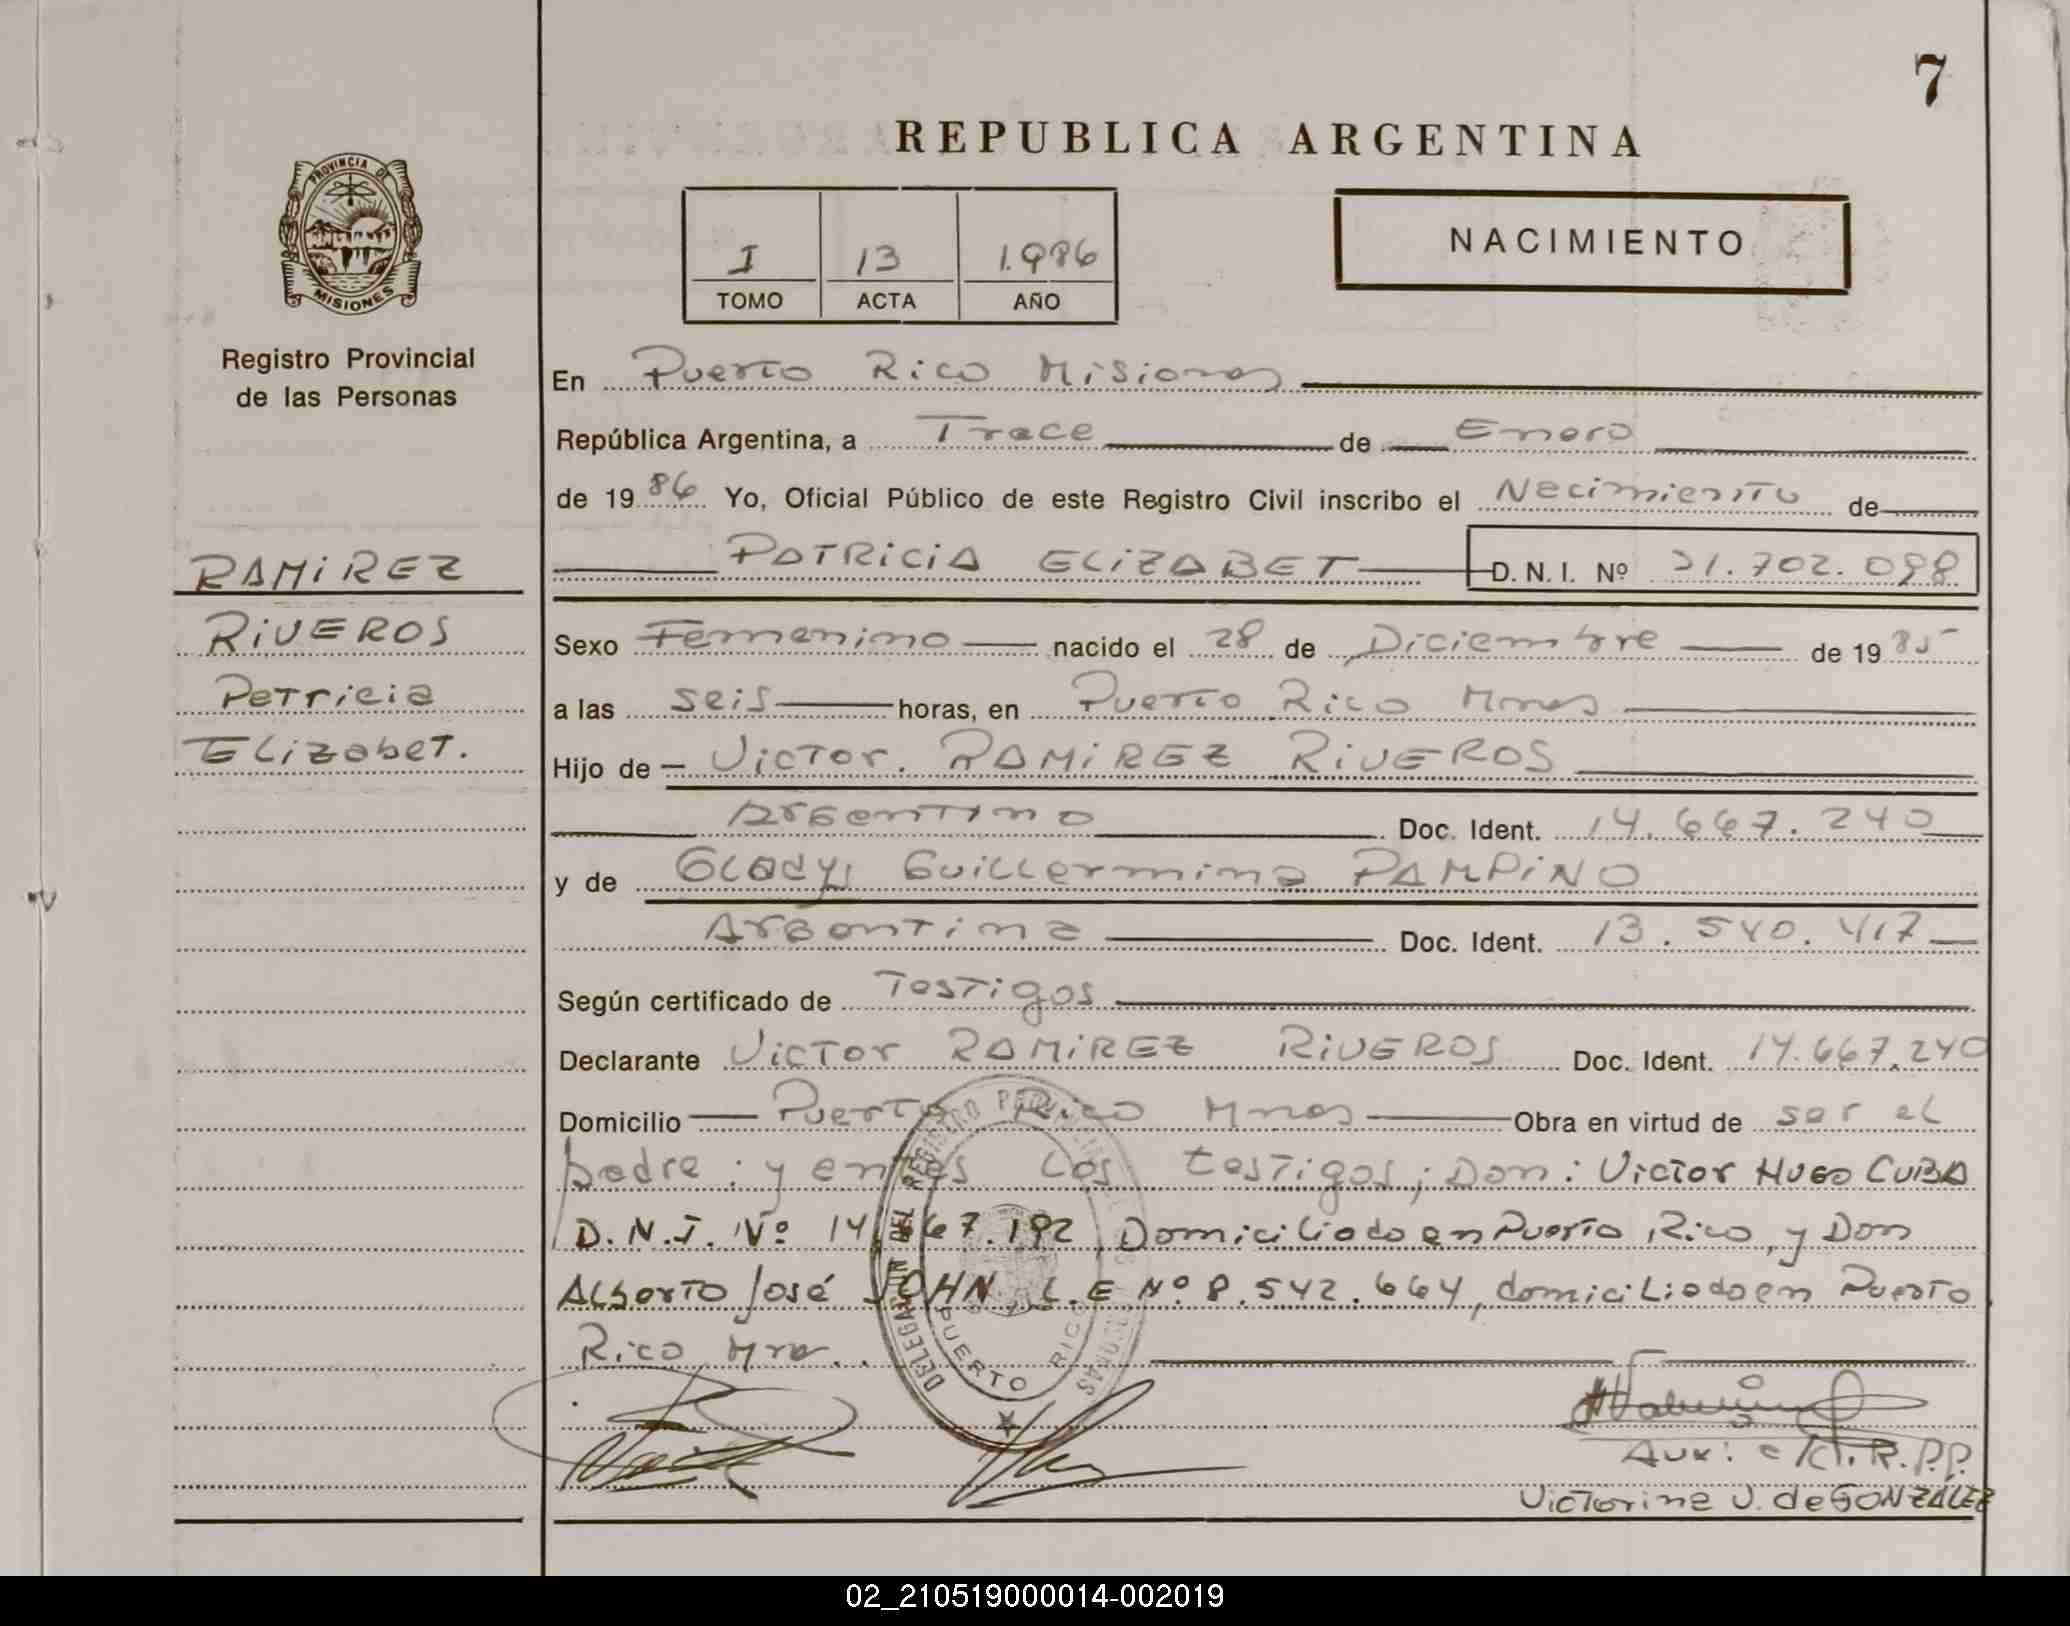 7
REPUBLICA ARGENTINA
PROVINCIA DE
MISIONES
Registro Provincial
de las Personas
I 13 1.986
TOMO ACTA AÑO
NACIMIENTO
En Puerto Rico Misiones
República Argentina, a Trece de Enero
de 19 86 Yo, Oficial Público de este Registro Civil inscribo el Nacimiento de
PATRICIA ELIZABET D. N. I. Nº 31.702.098
RAMIREZ
RIVEROS
Patricia
Elizabet.
Sexo Femenino nacido el 28 de Diciembre de 19 85
a las seis horas, en Puerto Rico Mnes
Hijo de Victor. RAMIREZ RIVEROS
Argentino Doc. Ident. 14.667.240
y de Gladys Guillermina PAMPINO
Argentina Doc. Ident. 13.540.417
Según certificado de Testigos
Declarante Victor RAMIREZ RIVEROS Doc. Ident. 14.667.240
Domicilio Puerto Rico Mnes Obra en virtud de ser el
padre : y los testigos ; Don : Victor Hugo CUBA
D.N.I. Nº 14.667.192 Domiciliado en Puerto Rico, y Don
Alberto José JOHN L.E Nº 8.542.664, domiciliado en Puerto
Rico
DELEGACION DEL REGISTRO PROVINCIAL DE LAS PERSONAS
PUERTO RICO
R.P.P.
Victorina V. de GONZÁLEZ
02_210519000014-002019